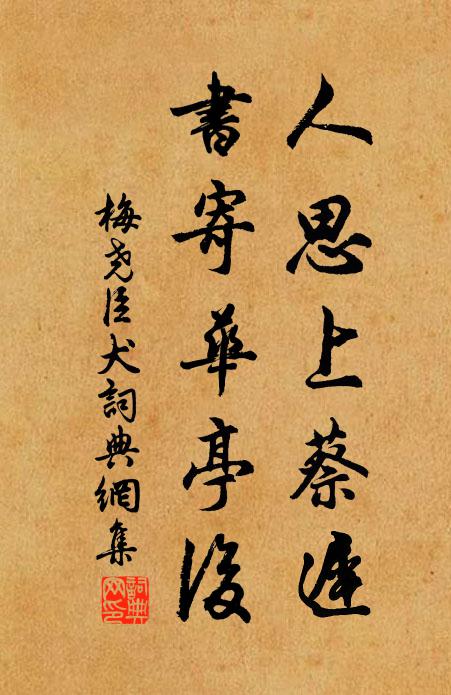 人思上蔡遲
書寄華亭後
梅堯臣犬詞典網集
詞典网印